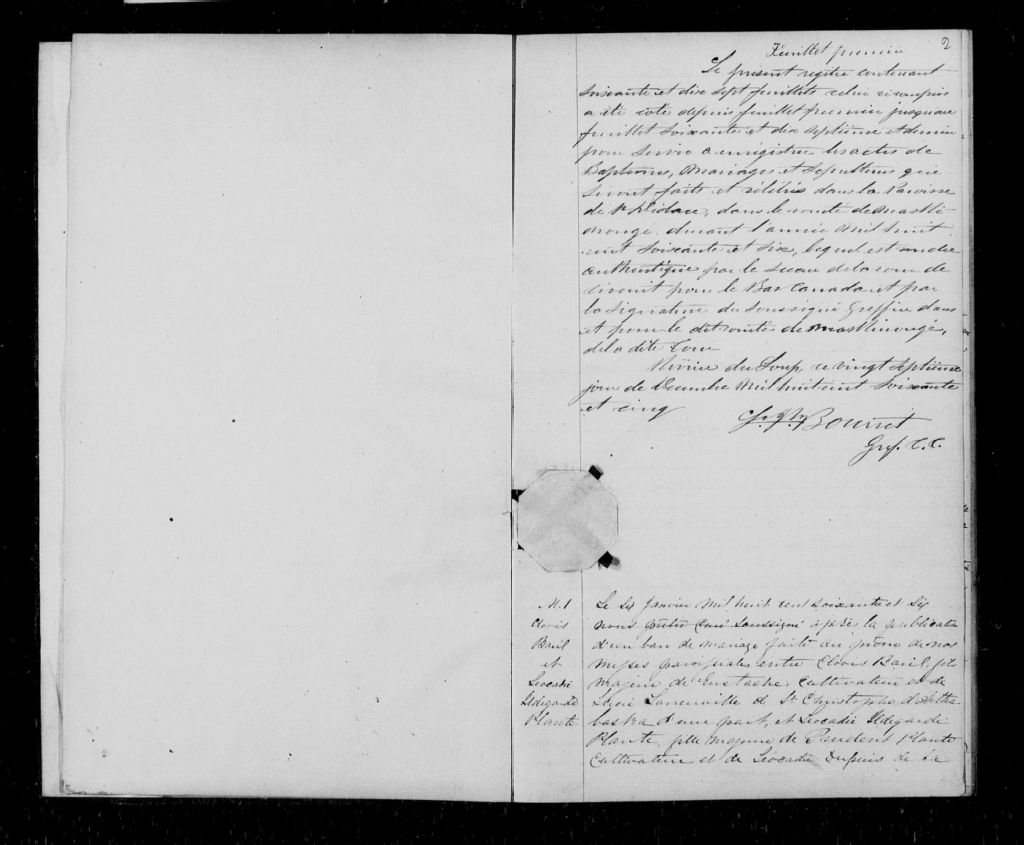 2
Feuillet premier
Le présent registre contenant
soixante et dix sept feuillets celui ci compris
a été coté depuis feuillet premier jusqu'au
feuillet soixante et dix septième et dernier
pour servir a enrégistrer les actes de
Baptêmes, Mariages et sépultures qui
seront faits et célébrés dans la Paroisse
de St Didace, dans le comté de Maski
nongé durant l'année mil huit
cent soixante et six, lequel est rendu
authentique par le sceau de la cour de
circuit pour le Bas Canada et par
la signature du soussigné Greffier dans
et pour le dit comté de Maskinongé,
de la dite Cour
Rivière du Loup, ce vingt septième
jour de Décembre mil huit cent soixante
et cinq
Bourret
Gref. C. C.
M. 1
Clovis
Baril
et
Léocadie
Ildegarde
Plante
Le six Janvier mil huit cent soixante et six
nous prêtre Curé soussigné après la publication
d'un ban de mariage faite au prône de nos
messes paroissiales entre Clovis Baril, fils
majeur de Eustache Cultivateur et de
Lucie Lanouville de St Christophe d'Artha
baska d'une part, et Léocadie Ildegarde
Plante, fille majeure de Prudent Plante
Cultivateur et de Léocadie Dupuis de la